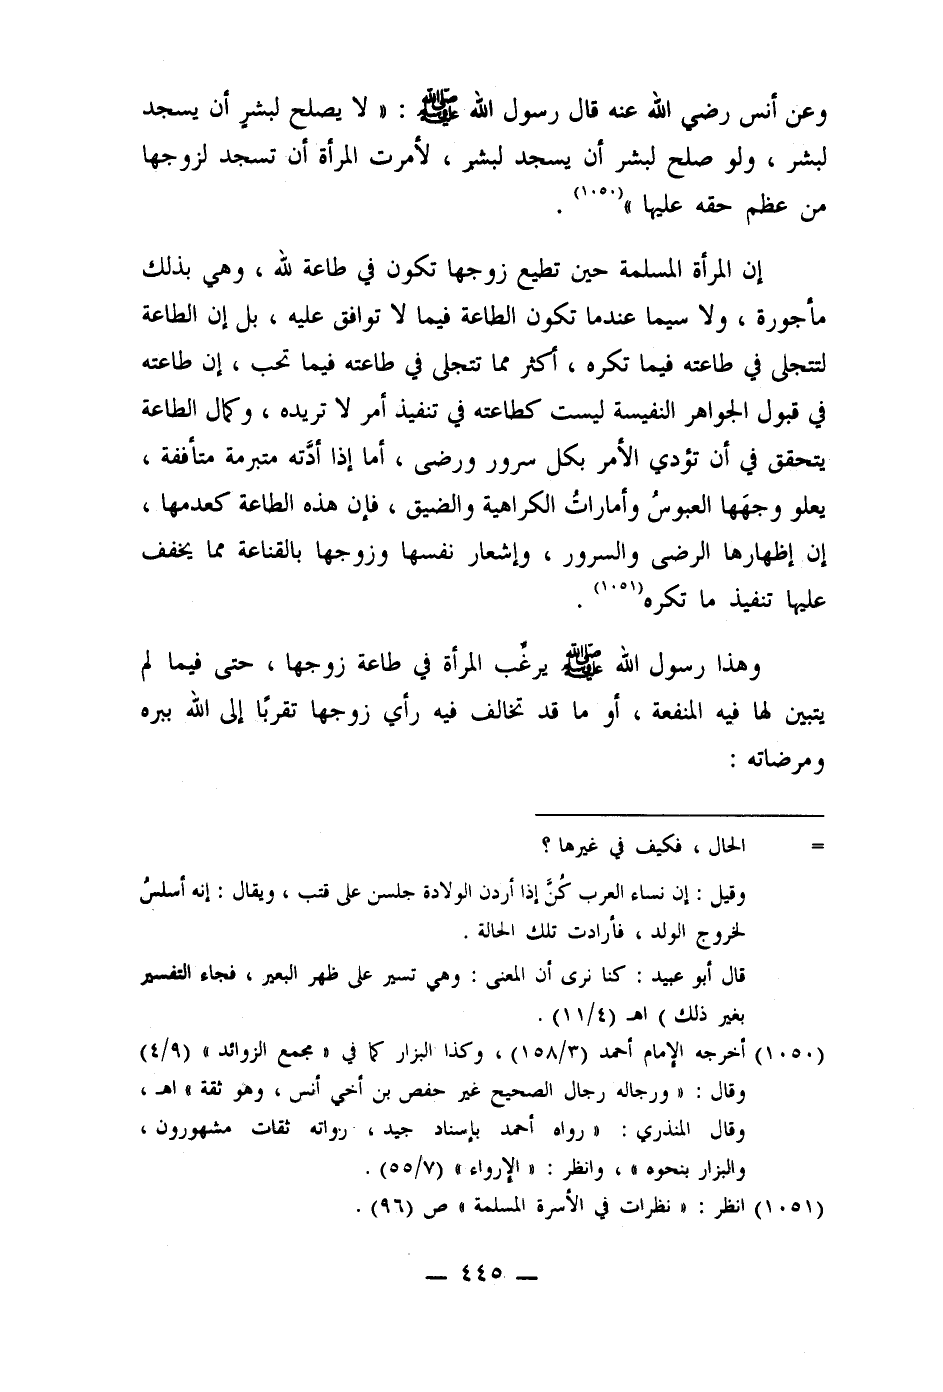 وعن أنس رضي الله عنه قال رسول الله ﷺ : « لا يصلح لبشرٍ أن يسجد
لبشر ، ولو صلح لبشر أن يسجد لبشر ، لأمرت المرأة أن تسجد لزوجها
من عظم حقه عليها »(١٠٥٠) .
إن المرأة المسلمة حين تطيع زوجها تكون في طاعة لله ، وهي بذلك
مأجورة ، ولا سيما عندما تكون الطاعة فيما لا توافق عليه ، بل إن الطاعة
لتتجلى في طاعته فيما تكره ، أكثر مما تتجلى في طاعته فيما تحب ، إن طاعته
في قبول الجواهر النفيسة ليست كطاعته في تنفيذ أمر لا تريده ، وكمال الطاعة
يتحقق في أن تؤدي الأمر بكل سرور ورضى ، أما إذا أدَّته متبرمة متأففة ،
يعلو وجهَها العبوسُ وأماراتُ الكراهية والضيق ، فإن هذه الطاعة كعدمها ،
إن إظهارها الرضى والسرور ، وإشعار نفسها وزوجها بالقناعة مما يخفف
عليها تنفيذ ما تكره(١٠٥١) .
وهذا رسول الله ﷺ يرغِّب المرأة في طاعة زوجها ، حتى فيما لم
يتبين لها فيه المنفعة ، أو ما قد تخالف فيه رأي زوجها تقربًا إلى الله ببره
ومرضاته :
= الحال ، فكيف في غيرها ؟
وقيل : إن نساء العرب كُنَّ إذا أردن الولادة جلسن على قتب ، ويقال : إنه أسلسُ
لخروج الولد ، فأرادت تلك الحالة .
قال أبو عبيد : كنا نرى أن المعنى : وهي تسير على ظهر البعير ، فجاء التفسير
بغير ذلك ) اهـ (١١/٤) .
(١٠٥٠) أخرجه الإمام أحمد (١٥٨/٣) ، وكذا البزار كما في « مجمع الزوائد » (٤/٩)
وقال : « ورجاله رجال الصحيح غير حفص بن أخي أنس ، وهو ثقة » اهـ ،
وقال المنذري : « رواه أحمد بإسناد جيد ، رواته ثقات مشهورون ،
والبزار بنحوه » ، وانظر : « الإرواء » (٥٥/٧) .
(١٠٥١) انظر : « نظرات في الأسرة المسلمة » ص (٩٦) .
— ٤٤٥ —